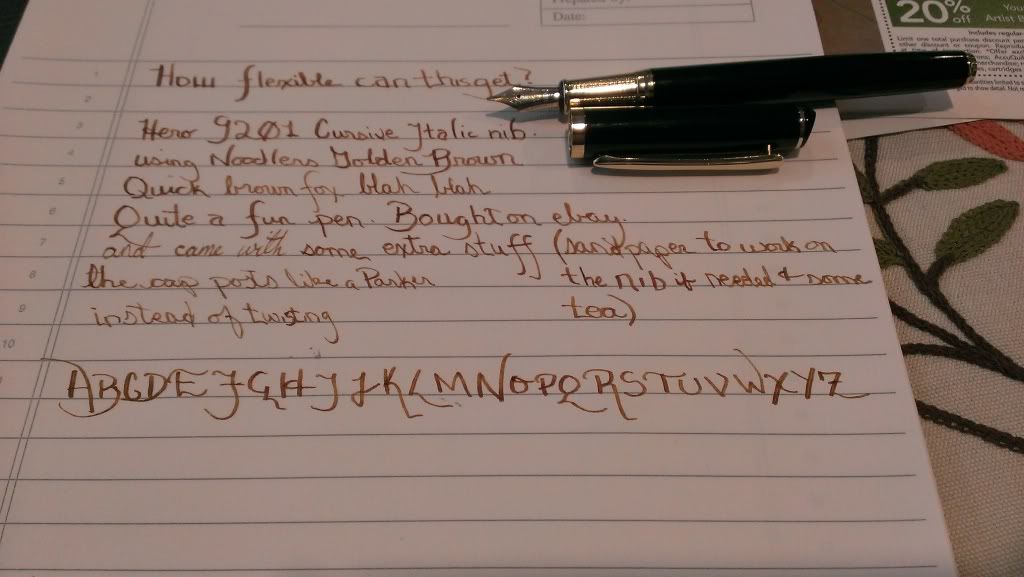 Prepared by:
Date:
20% off
You
Artist B
Includes regular
Limit one total purchase discount per
other discount or coupon.
How flexible can this get?
Hero 9201 Cursive Italic nib.
using Noodlers Golden Brown
Quick brown fox blah blah
Quite a fun pen. Bought on ebay.
and came with some extra stuff (sandpaper to work on
the cap posts like a Parker the nib if needed & some
instead of twisting tea)
ABCDEFGHIJKLMNOPQRSTUVWXYZ
1
2
3
4
5
6
7
8
9
10